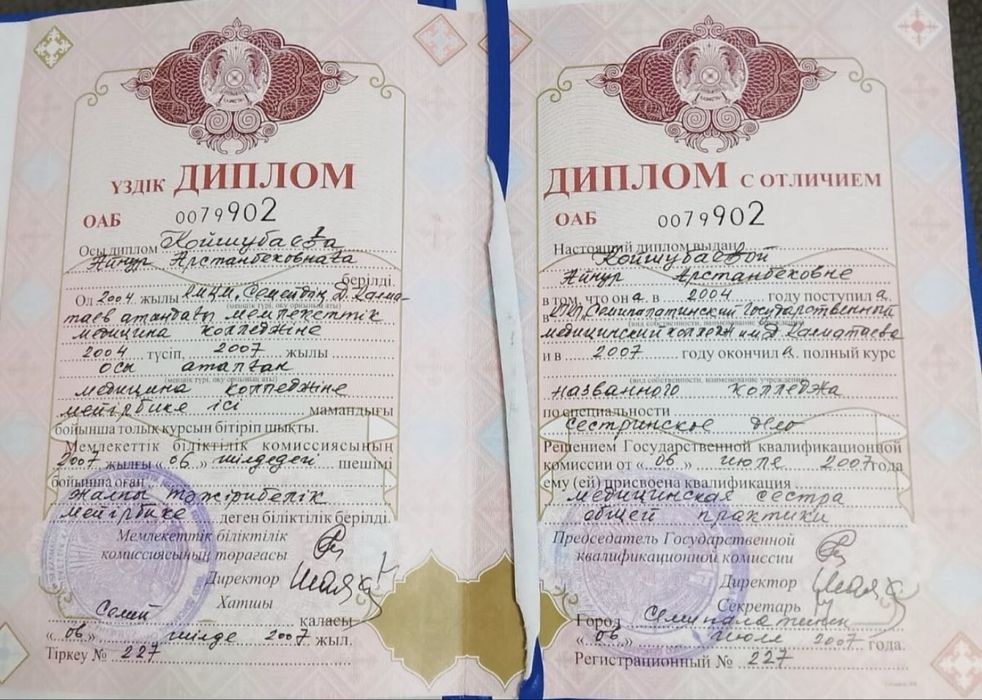 ҮЗДІК ДИПЛОМ
ОАБ 0079902
Осы диплом Койшубаева
Айнур Арстанбековнаға
берілді.
Ол 2004 жылы КМҚМ, Семейдің Д.Калма-
таев атындағы мемлекеттік
(меншік түрі, оқу орнының аты)
медицина колледжіне
2004 түсіп, 2007 жылы
осы аталған
(меншік түрі, оқу орнының аты)
медицина колледжіне
мейірбике ісі мамандығы
бойынша толық курсын бітіріп шықты.
Мемлекеттік біліктілік комиссиясының
2007 жылғы «06» шілдедегі шешімі
бойынша оған
жалпы тәжірибелік
мейірбике деген біліктілік берілді.
Мемлекеттік біліктілік
комиссиясының төрағасы
Директор
Хатшы
Семей қаласы
«06» шілде 2007 жыл.
Тіркеу № 227
ДИПЛОМ С ОТЛИЧИЕМ
ОАБ 0079902
Настоящий диплом выдан
Койшубаевой
Айнур Арстанбековне
в том, что она в 2004 году поступила
в КГКП, Семипалатинский Государственный
(вид собственности, наименование учреждения)
медицинский колледж им. Д.Калматаева
и в 2007 году окончила полный курс
(вид собственности, наименование учреждения)
названного колледжа
по специальности
Сестринское дело
Решением Государственной квалификационной
комиссии от «06» июля 2007 года
ему (ей) присвоена квалификация
медицинская сестра
общей практики
Председатель Государственной
квалификационной комиссии
Директор
Секретарь
Город Семипалатинск
«06» июля 2007 года.
Регистрационный № 227